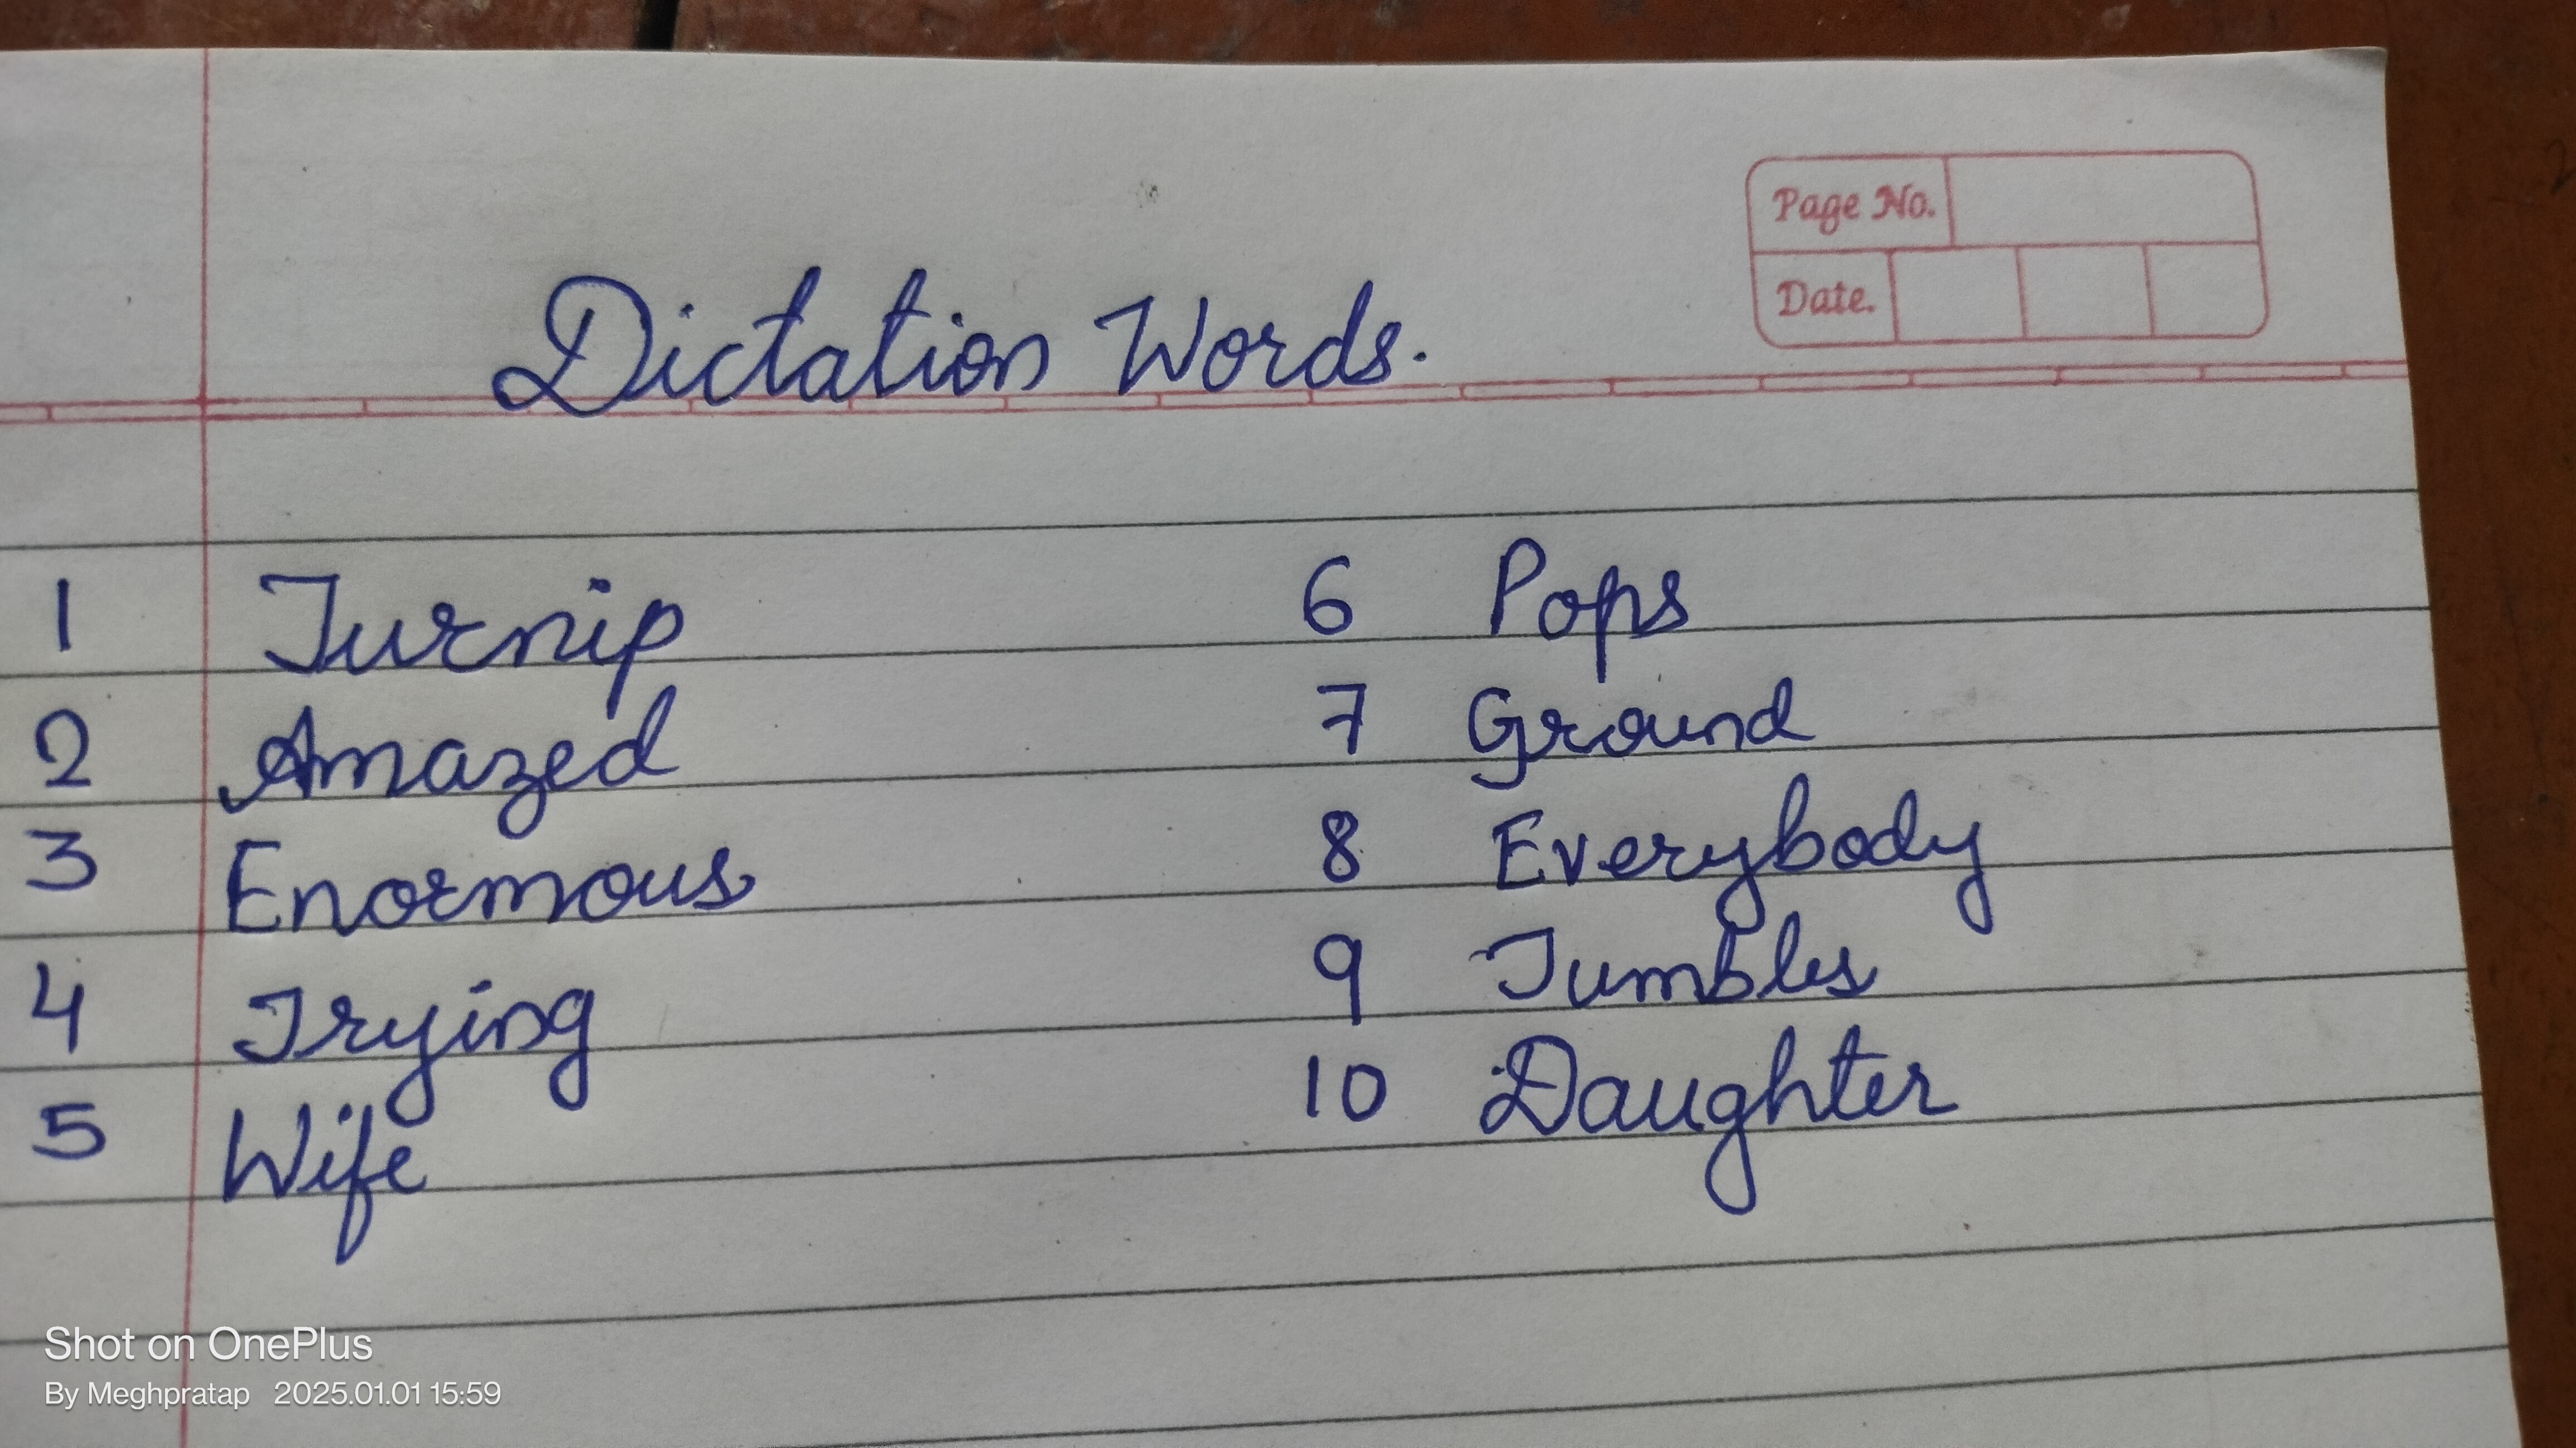 Page No.
Date.
Dictation Words.
1 Turnip
2 Amazed
3 Enormous
4 Trying
5 Wife
6 Pops
7 Ground
8 Everybody
9 Tumbles
10 Daughter
Shot on OnePlus
By Meghpratap 2025.01.01 15:59